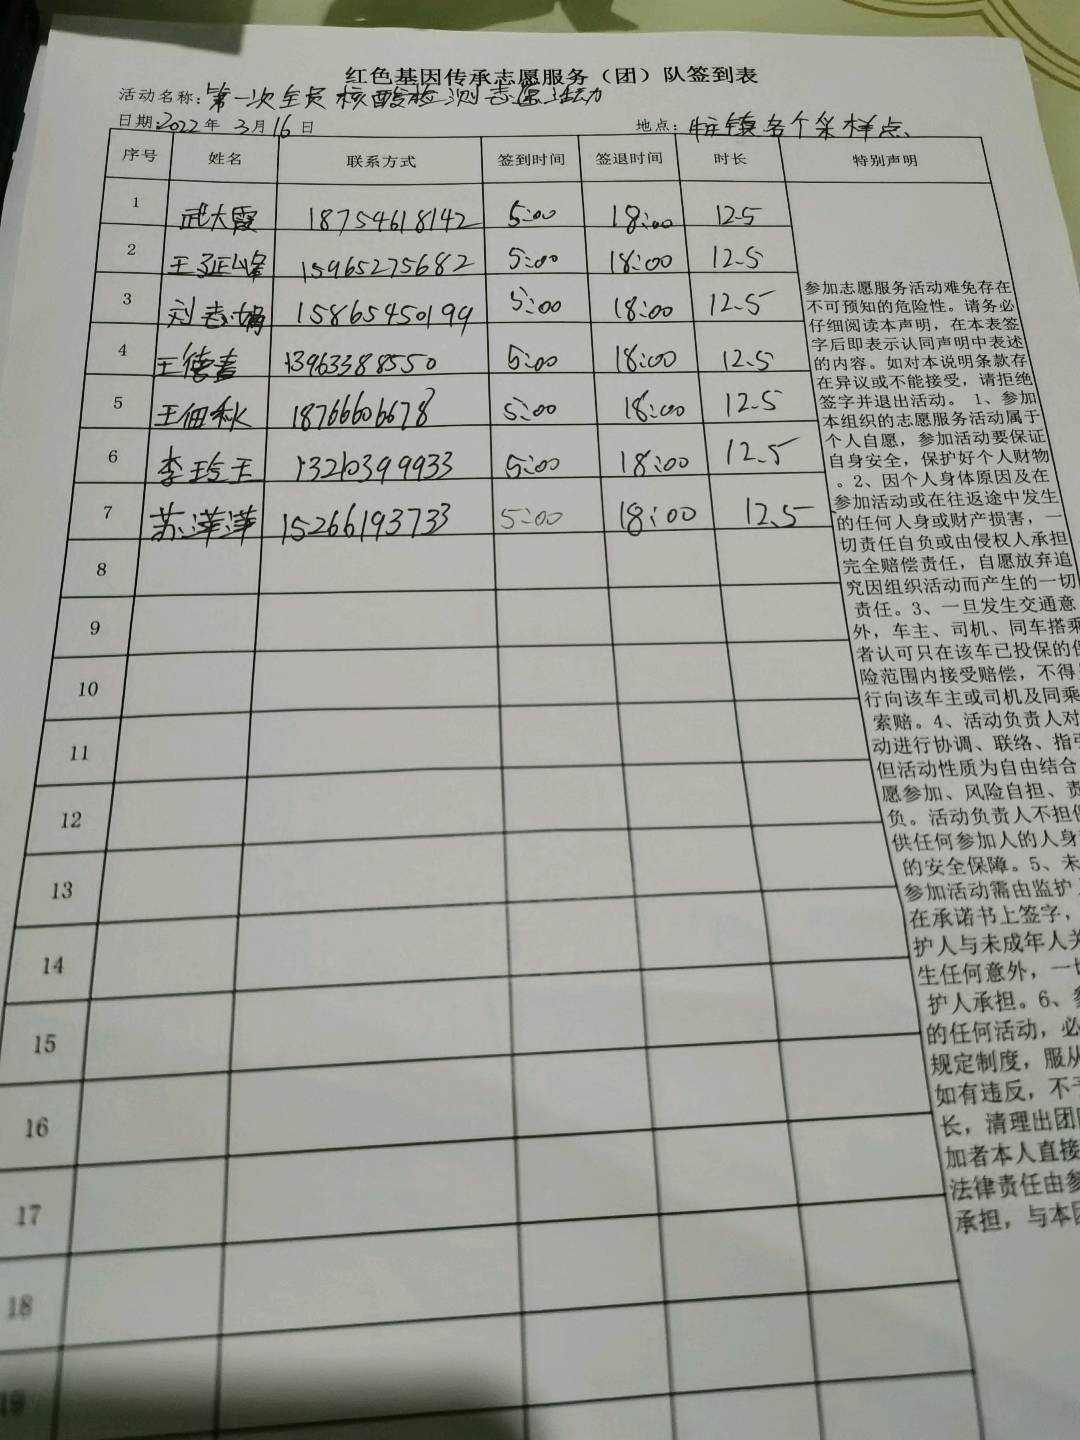 红色基因传承志愿服务（团）队签到表
活动名称：第一次全员核酸检测志愿活动
日期：2022年3月16日 地点：镇各个采样点、
序号 姓名 联系方式 签到时间 签退时间 时长 特别声明
1 武大霞 18754618142 5:00 18:00 12.5
2 王延峰 15965275682 5:00 18:00 12.5
3 刘志娟 15865450199 5:00 18:00 12.5
4 王德喜 13963388550 5:00 18:00 12.5
5 王佃秋 18766606678 5:00 18:00 12.5
6 李玲玉 13210399933 5:00 18:00 12.5
7 苏洋洋 15266193733 5:00 18:00 12.5
8
9
10
11
12
13
14
15
16
17
18
19
参加志愿服务活动难免存在
不可预知的危险性。请务必
仔细阅读本声明，在本表签
字后即表示认同声明中表述
的内容。如对本说明条款存
在异议或不能接受，请拒绝
签字并退出活动。 1、参加
本组织的志愿服务活动属于
个人自愿，参加活动要保证
自身安全，保护好个人财物
。2、因个人身体原因及在
参加活动或在往返途中发生
的任何人身或财产损害，一
切责任自负或由侵权人承担
完全赔偿责任，自愿放弃追
究因组织活动而产生的一切
责任。3、一旦发生交通意
外，车主、司机、同车搭乘
者认可只在该车已投保的保
险范围内接受赔偿，不得
行向该车主或司机及同乘
索赔。4、活动负责人对
动进行协调、联络、指引
但活动性质为自由结合
愿参加、风险自担、责
负。活动负责人不担保
供任何参加人的人身
的安全保障。5、未
参加活动需由监护
在承诺书上签字，
护人与未成年人关
生任何意外，一切
护人承担。6、参
的任何活动，必
规定制度，服从
如有违反，不予
长，清理出团队
加者本人直接
法律责任由参
承担，与本团